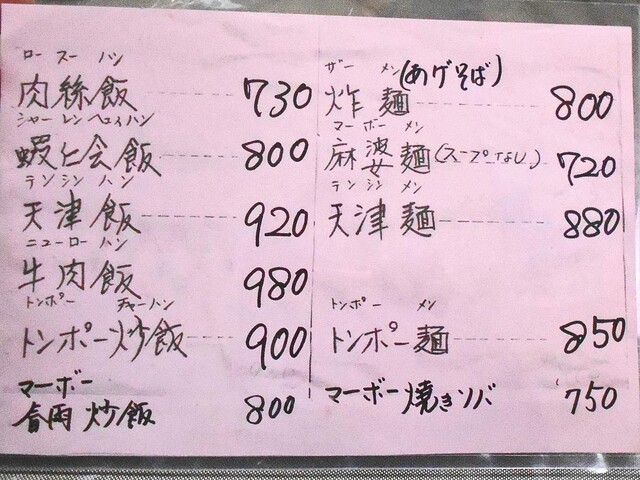 ロースー ハン
肉絲飯 730
シャーレンヘロィハン
蝦仁会飯 800
テンシン ハン
天津飯 920
ニューロー ハン
牛肉飯 980
トンポー チャーハン
トンポー炒飯 900
マーボー
炒飯 800
ザー メン
炸麺(あげそば) 800
マーボー メン
麻婆麺(スープなし) 720
テンシン メン
天津麺 880
トンポー メン
トンポー麺 850
マーボー焼きソバ 750